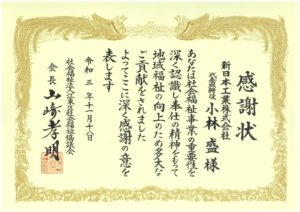 感謝状
新日本工業株式会社
代表取締役
小林盛様
あなたは社会福祉事業の重要性を
深く認識し奉仕の精神をもって
地域福祉の向上のため多大な
ご貢献をされました
よってここに深く感謝の意を
表します
令和三年十一月十八日
社会福祉法人江東区社会福祉協議会
会長 山﨑孝明